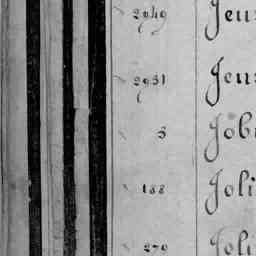 2949 Jeu
2951 Jeu
5 Job
188 Joli
270 Joli